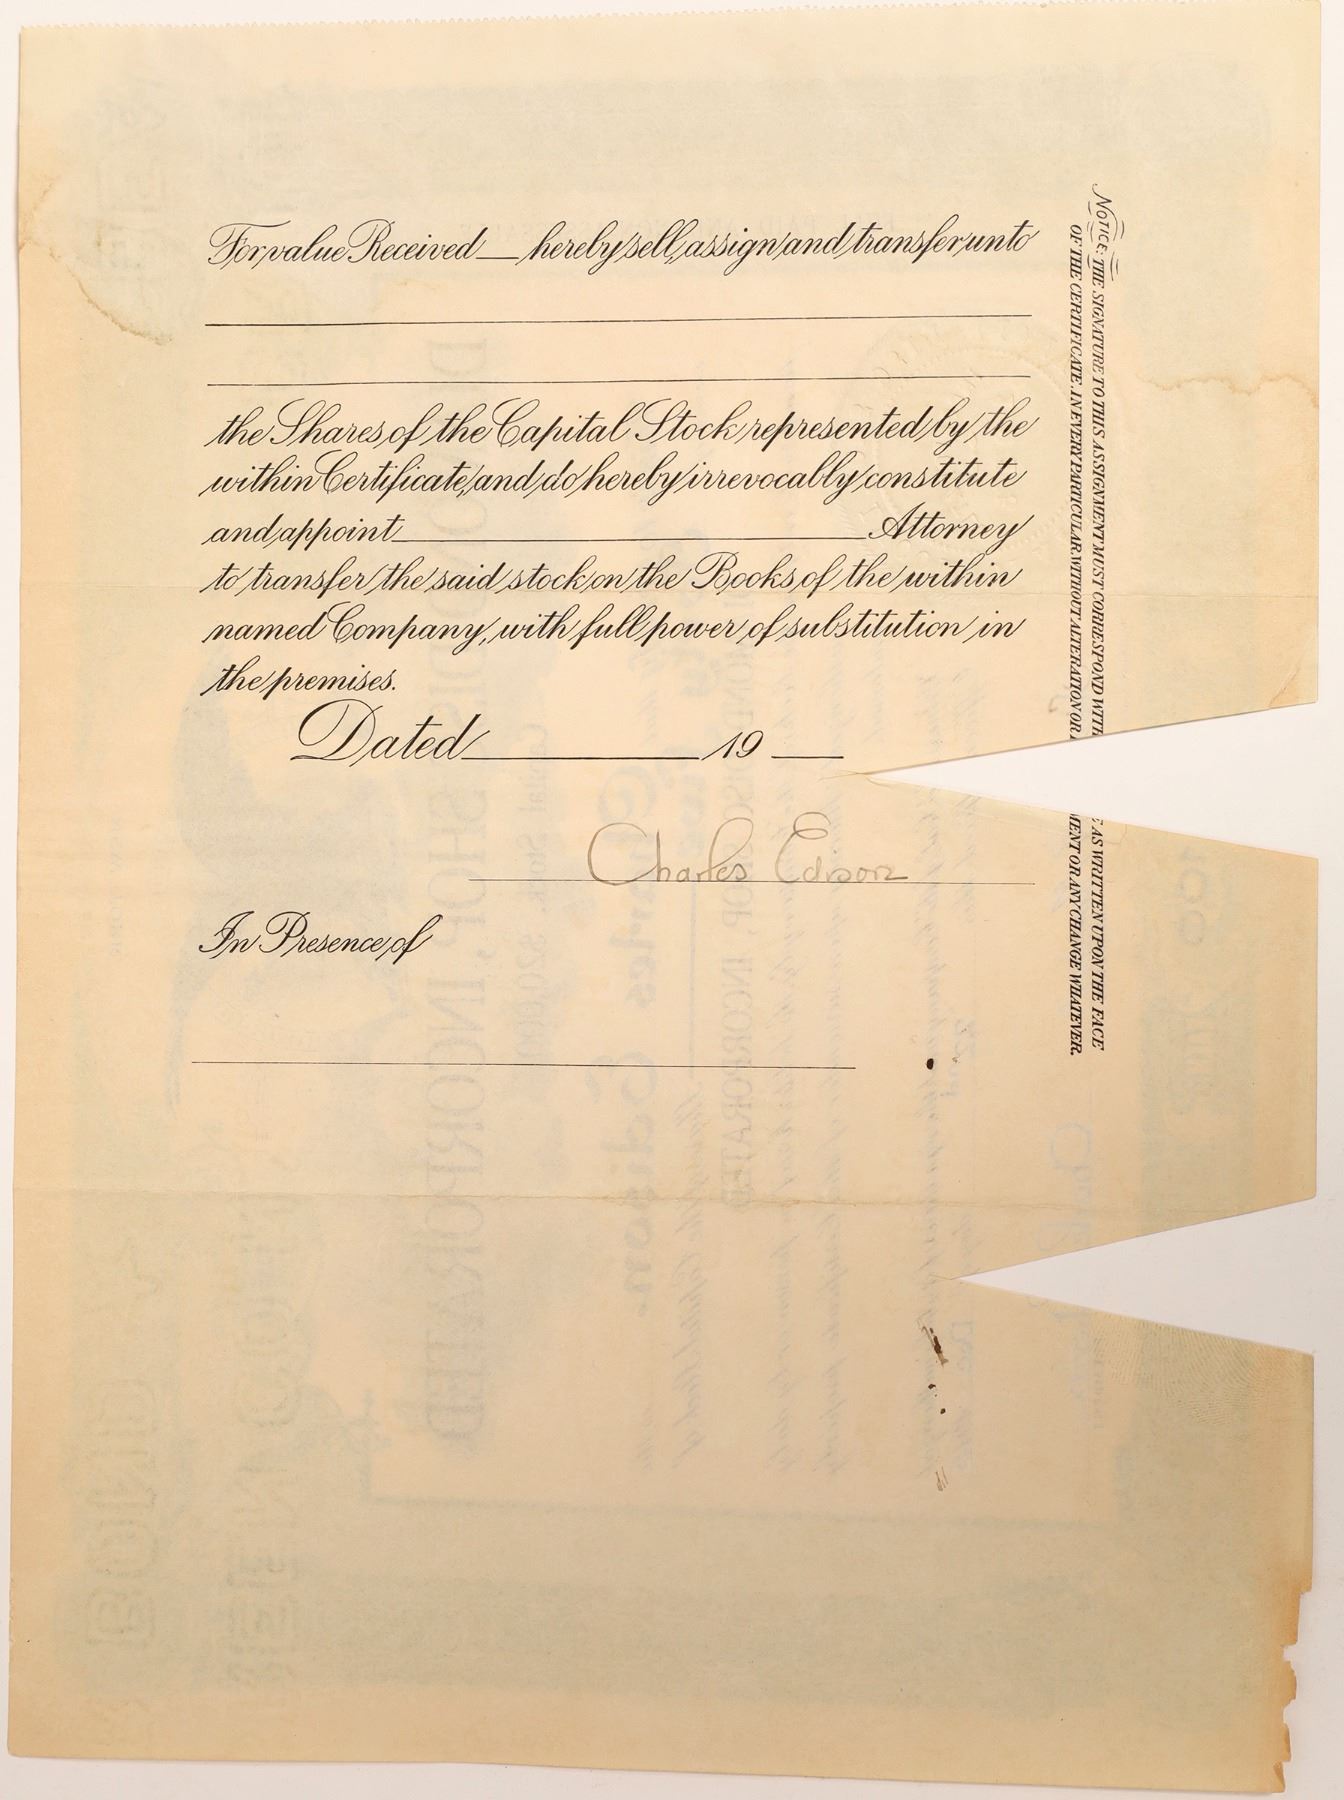 For value Received hereby sell, assign and transfer unto
the Shares of the Capital Stock represented by the
within Certificate, and do hereby irrevocably constitute
and appoint Attorney
to transfer the said stock on the Books of the within
named Company, with full power of substitution in
the premises.
Dated 19
Charles Edison
In Presence of
NOTICE: THE SIGNATURE TO THIS ASSIGNMENT MUST CORRESPOND WITH AS WRITTEN UPON THE FACE
OF THE CERTIFICATE, IN EVERY PARTICULAR WITHOUT ALTERATION OR MENT OR ANY CHANGE WHATEVER.